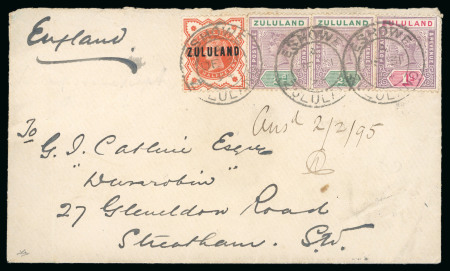 England
ZULULAND
ZULULAND ZULULAND ZULULAND
ESHOWE ESHOWE ESHOWE
Ansd 2/2/95
To
G. J. Catline Esqre
"Dunrobin"
27 Gleneldon Road
Streatham. S.W.